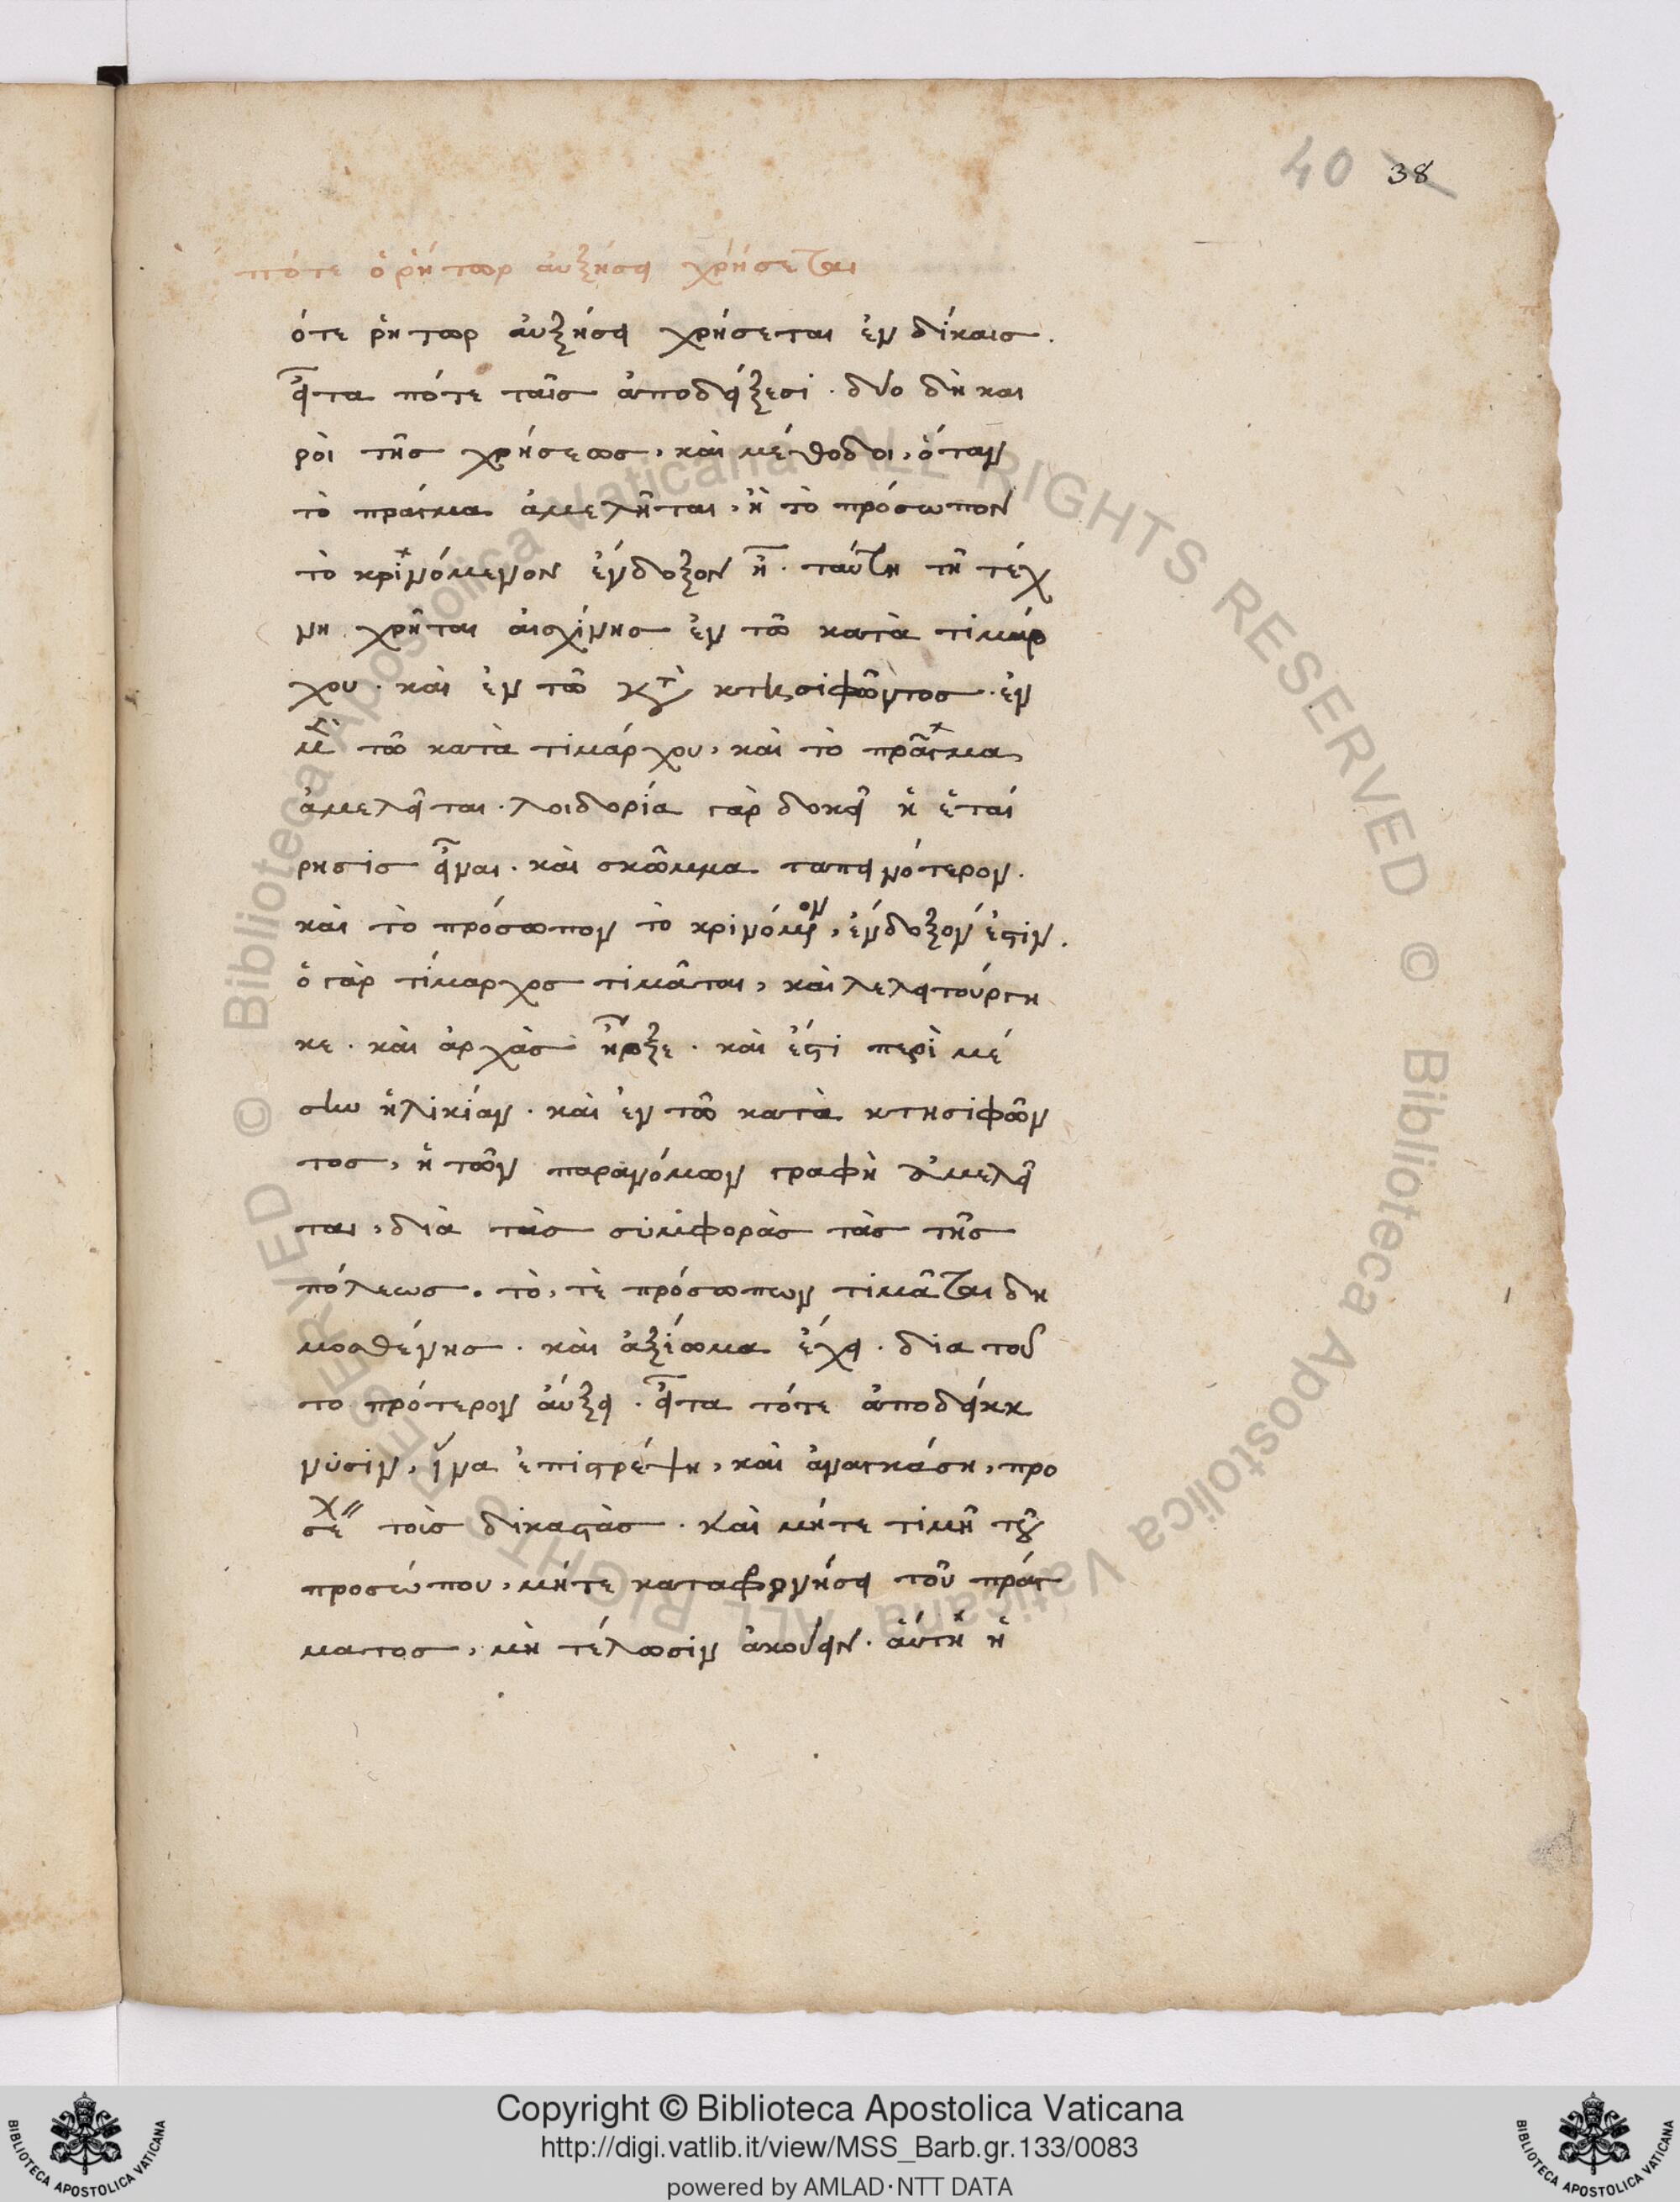 40 38
πότε ὁ ῥήτωρ αὐξήσει χρήσεται
ότε ῥήτωρ αὐξήσει χρήσεται ἐν δίκαισ.
εἶτα πότε ταῖσ ἀποδείξεσι. δύο δὴ και
ρὸι τῆσ χρήσεωσ, καὶ μέθοδοι, ὅταν
τὸ πράγμα ἀμελῆται, ἢ τὸ πρόσωπον
τὸ κρινόμενον ἔνδοξον ἦ. ταύτη τῆ τέχ
νη χρῆται αἰσχίνησ ἐν τῶ κατὰ τιμάρ
χου. καὶ ἐν τῶ κτ κτησιφῶντοσ. ἐν
μ τῶ κατὰ τιμάρχου, καὶ τὸ πρᾶγμα
ἀμελεῖται. λοιδορία γὰρ δοκεῖ ἡ ἑταί
ρησισ εἶναι. καὶ σκῶμμα ταπεινότερον.
καὶ τὸ πρόσωπον τὸ κρινόμον, ἔνδοξόν ἐστιν.
ὁ γὰρ τίμαρχοσ τιμᾶται, καὶ λελειτούργη
κε. καὶ ἀρχὰσ ἦρξε. καὶ ἔστι περὶ μέ
σην ἡλικίαν. καὶ ἐν τῶ κατὰ κτησιφῶν
τοσ, ἡ τῶν παρανόμων γραφὴ ἀμελεῖ
ται, διὰ τὰσ συμφορὰσ τὰσ τῆσ
πόλεωσ. τὸ, τὲ πρόσωπων τιμᾶται δη
μοσθένησ. καὶ ἀξίωμα ἔχει. δια τοῦ
το πρότερον ἀύξει. εἶτα τότε ἀποδείκκ
νυσιν, ἵνα ἐπιστρέψη, καὶ ἀναγκάση, προ
σεχ τοὶσ δικαστὰσ. καὶ μήτε τιμῆ τοῦ
προσώπου, μήτε καταφρονήσει τοῦ πράγ
ματοσ, μὴ τέλωσιν ἀκούειν. ἀύτη ἡ
Copyright © Biblioteca Apostolica Vaticana
http://digi.vatlib.it/view/MSS_Barb.gr.133/0083
powered by AMLAD·NTT DATA